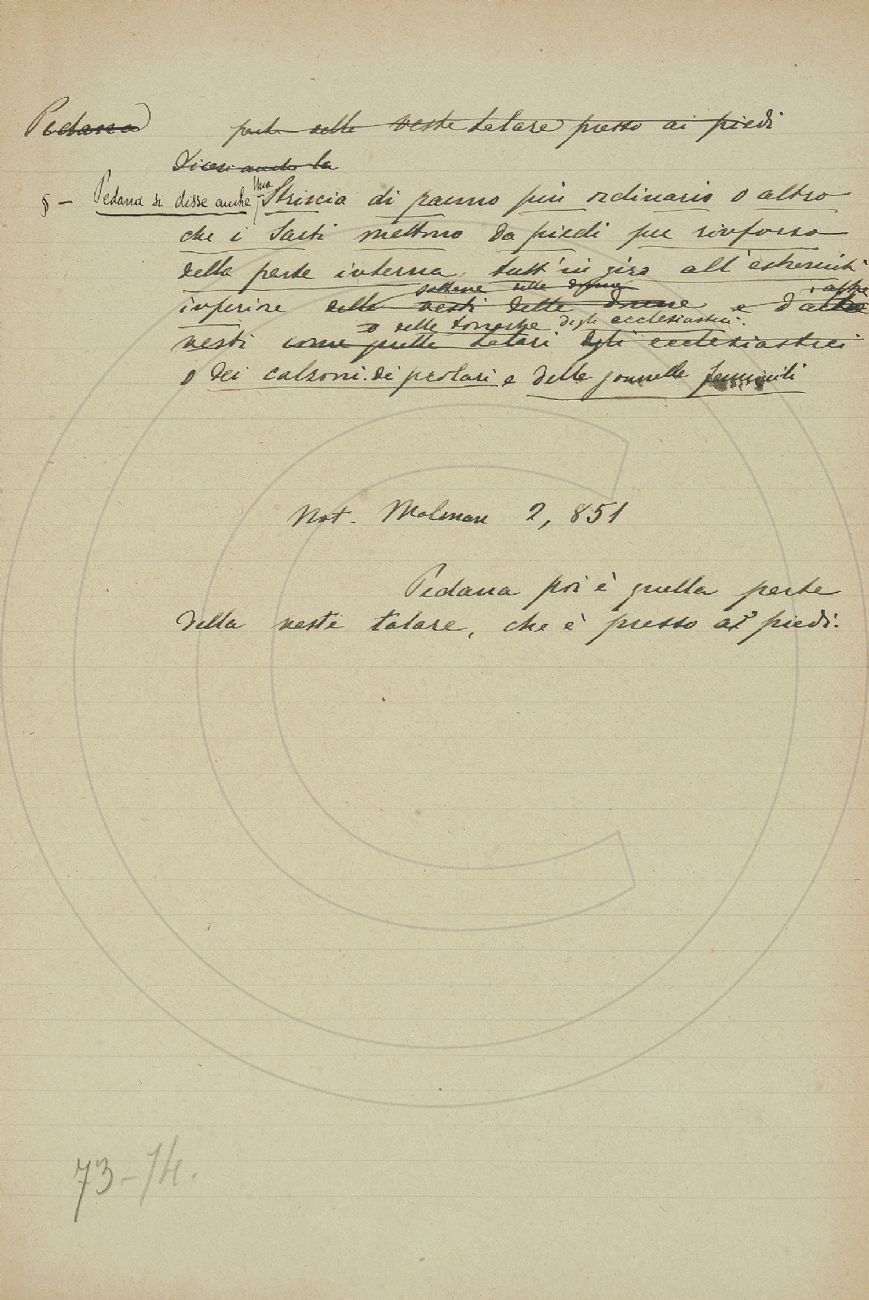 Pedana parte della veste talare presso ai piedi
Dicesi anche la
§ – Pedana si disse anche Una Striscia di panno più ordinario o altro
che i Sarti mettono da piedi per rinforzo
della parte interna, tutt'in giro all'estremità
sottane delle donne altre
inferiore delle vesti delle donne e d'altre
o delle tonache degli ecclesiastici.
vesti come quelle talari degli ecclesiastici
o dei calzoni di peolari e delle gonnelle femminili
Not. Malmant 2, 851
Pedana poi è quella parte
della veste talare, che è presso ai piedi.
73-74.